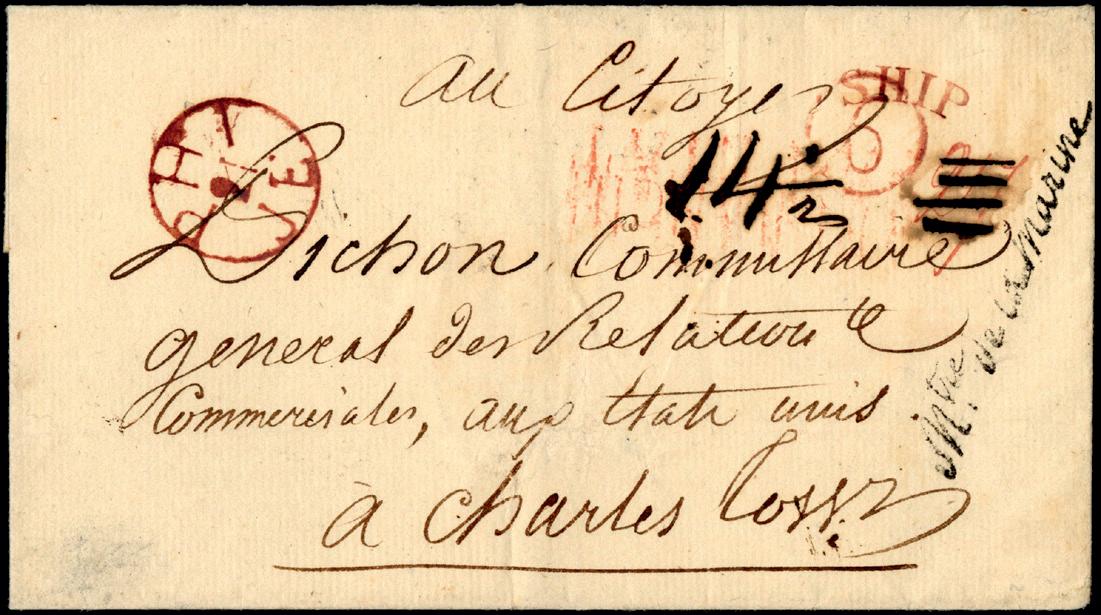 au Citoyen
SHIP
6
14 1/2
Pichon Commissaire
general des Relations
Commerciales, aux Etats unis
à Charles Town
Mtre de la Marine
PH